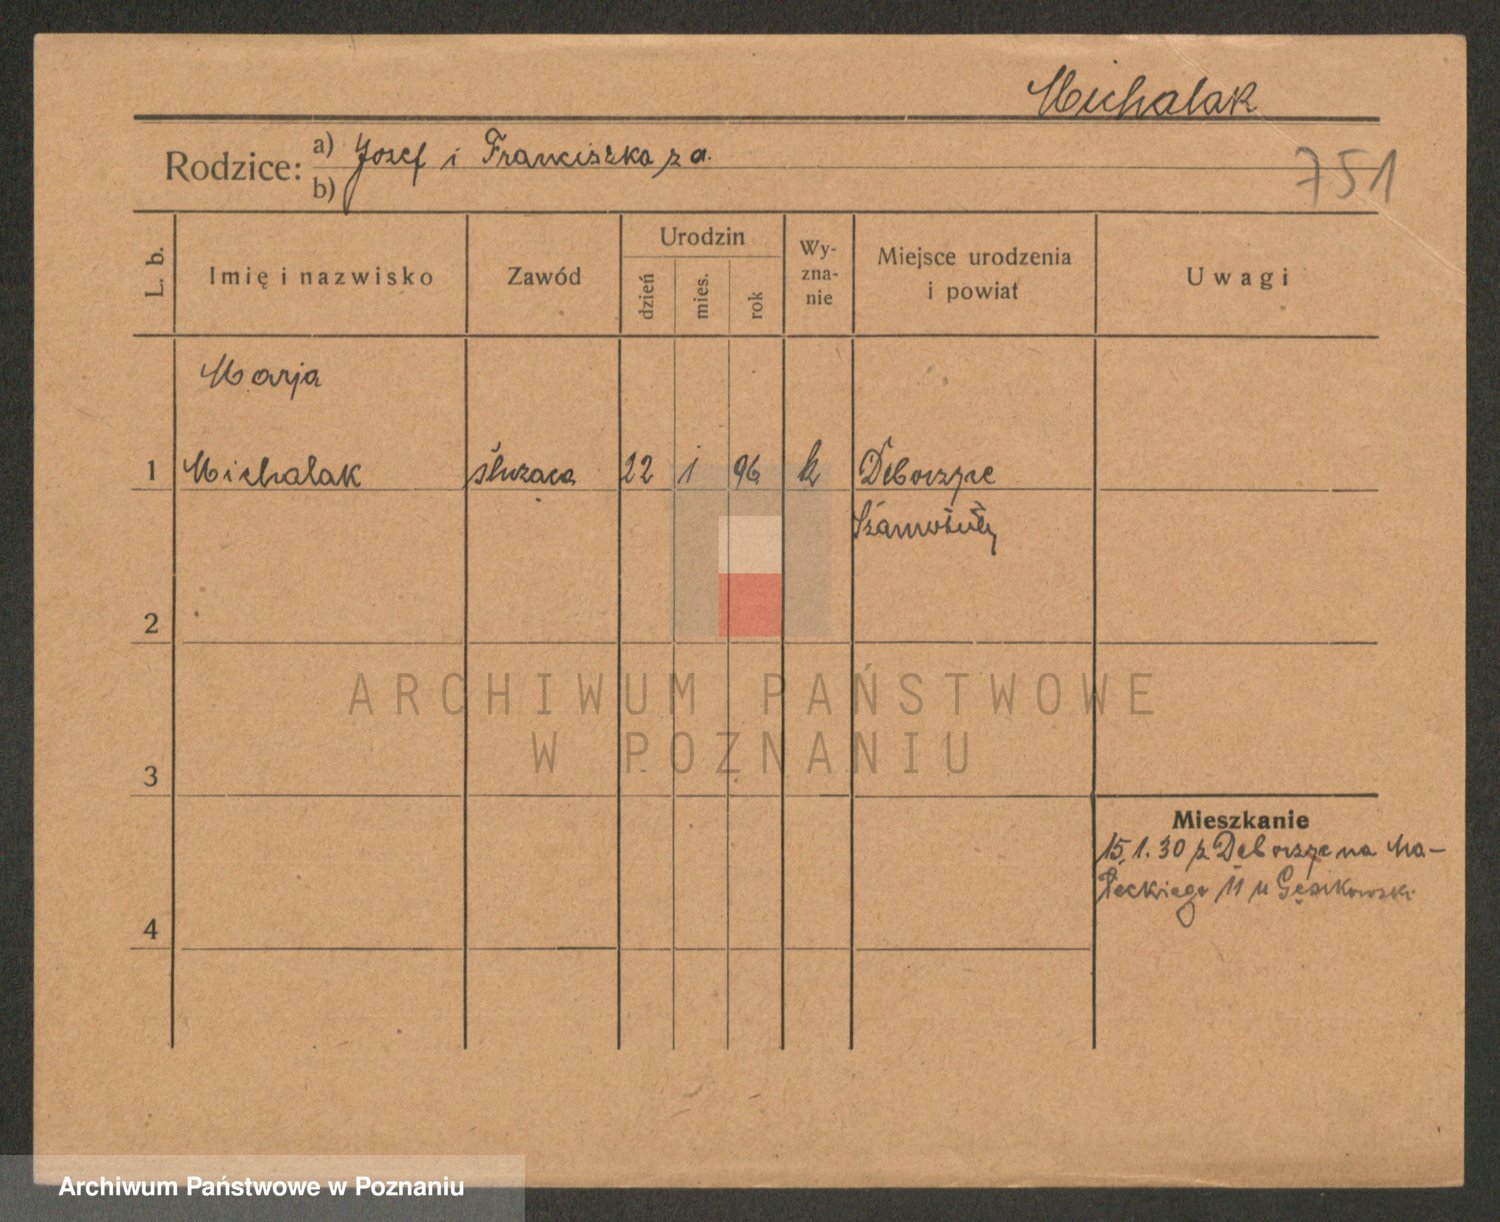 Michalak
Rodzice: a) Jozef i Franciszka z a.
b)
751
L. b.
Imię i nazwisko
Zawód
Urodzin
dzień
mies.
rok
Wy-
zna-
nie
Miejsce urodzenia
i powiat
Uwagi
Marja
1 Michalak służaca 22 1 96 k
Szamotuły
2
ARCHIWUM PAŃSTWOWE
W POZNANIU
3
Mieszkanie
15.1.30 z na Ma-
łeckiego 11 u
4
Archiwum Państwowe w Poznaniu